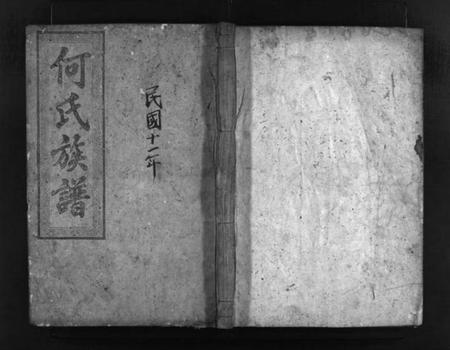 何氏族譜
民國十一年